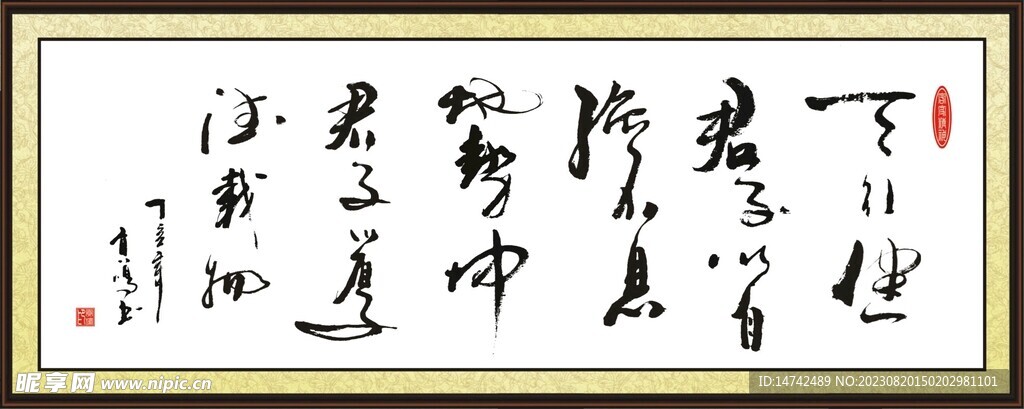 天行健
君子以自
强不息
地势坤
君子以厚
德载物
丁亥年
书
昵享网 www.nipic.cn
ID:14742489 NO:20230820150202981101